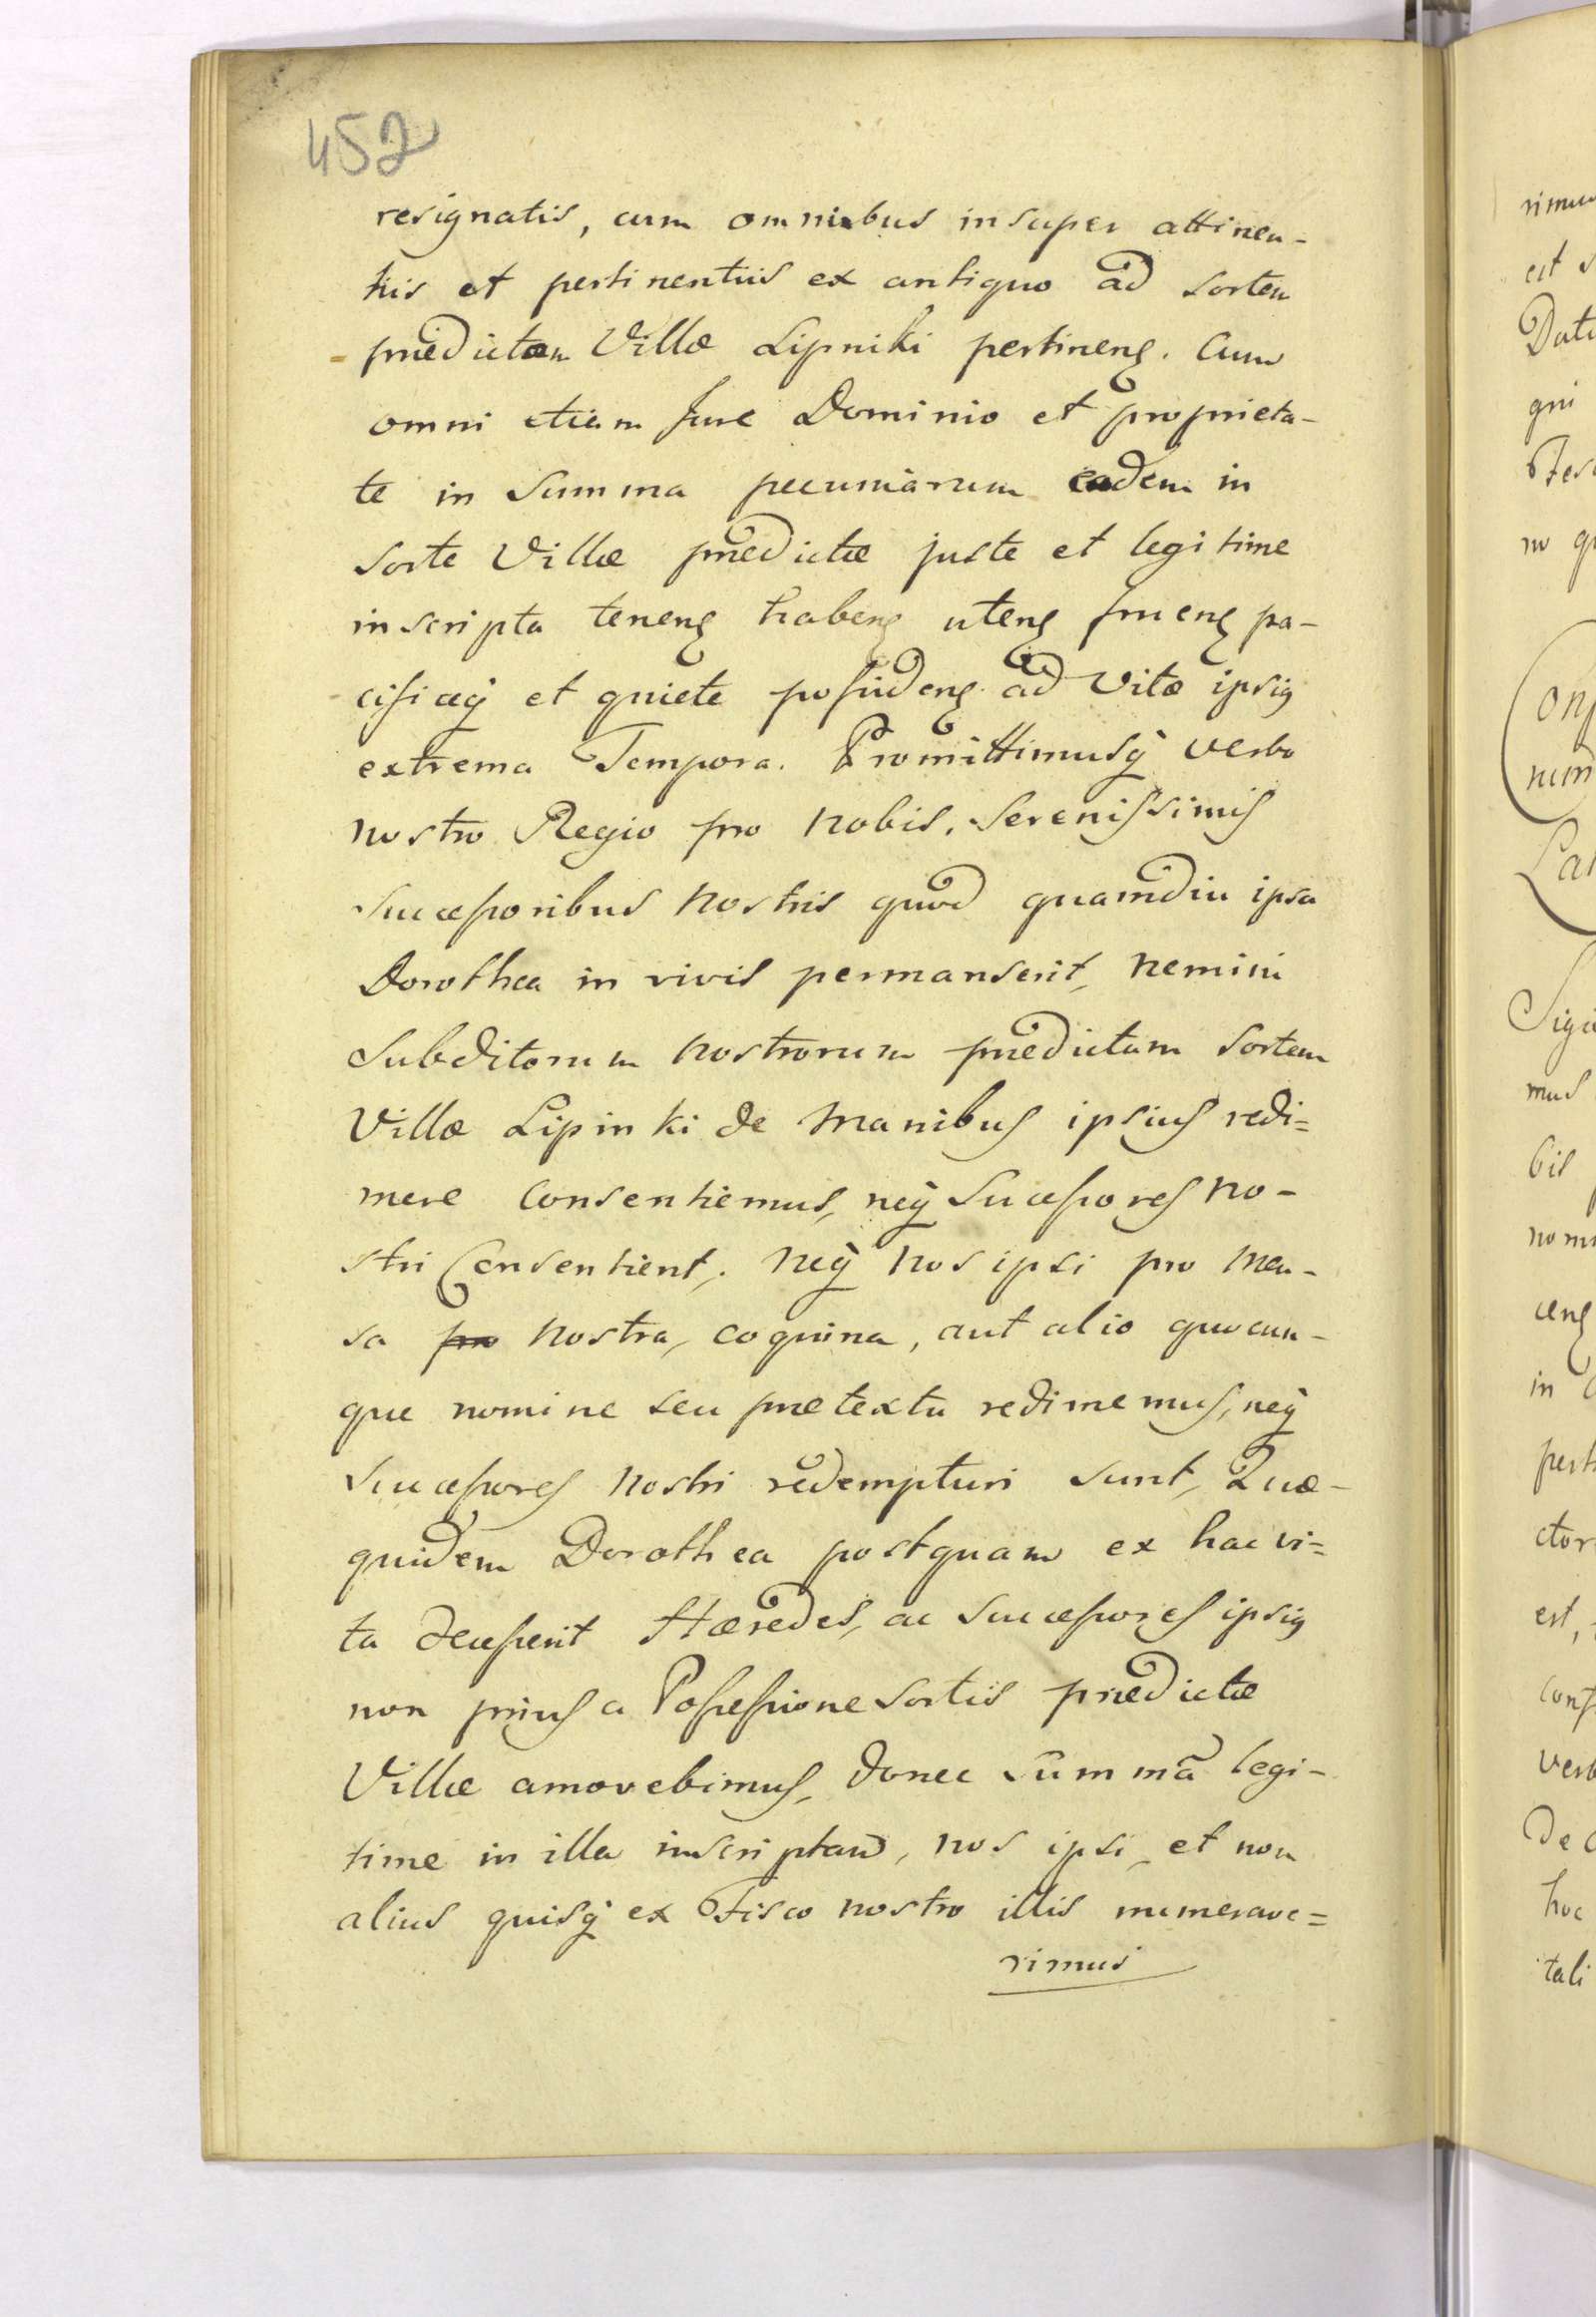 452
resignatis, cum omnibus insuper attinen-
tiis et pertinentiis ex antiquo ad sortem
prædictam Villæ Lipniki pertineñ. Cum
omni etiam Jure Dominio et proprieta-
te in Summa pecuniarum eadem in
Sorte Villæ prædictæ juste et legitime
inscripta teneñ habeñ uteñ frueñ pa-
cificeq̃ et quiete possideñ ad Vitæ ipsiꝰ
extrema Tempora. Promittimusq̃ Verbo
nostro Regio pro nobis, Serenissimis
Successoribus nostris quod quamdiu ipsa
Dorothea in vivis permanserit, nemini
Subditorum nostrorum prædictam Sortem
Villæ Lipinki de manibus ipsius redi=
mere Consentiemus, neq̃ Successores no-
stri Consentient, neq̃ nos ipsi pro men-
sa pro nostra, coquina, aut alio quocun-
que nomine seu prætextu redimemus, neq̃
Successores nostri redempturi sunt, Quæ-
quidem Dorothea postquam ex hac vi=
ta decesserit Hæredes, ac Successores ipsiꝰ
non prius a Possessione Sortis prædictæ
Villæ amovebimus, donec Summã legi-
time in illa inscriptam, nos ipsi, et non
alius quisq̃ ex Fisco nostro illis numerave=
rimus
rimus
est
qui
mus
bis
in
est,
hoc
tali